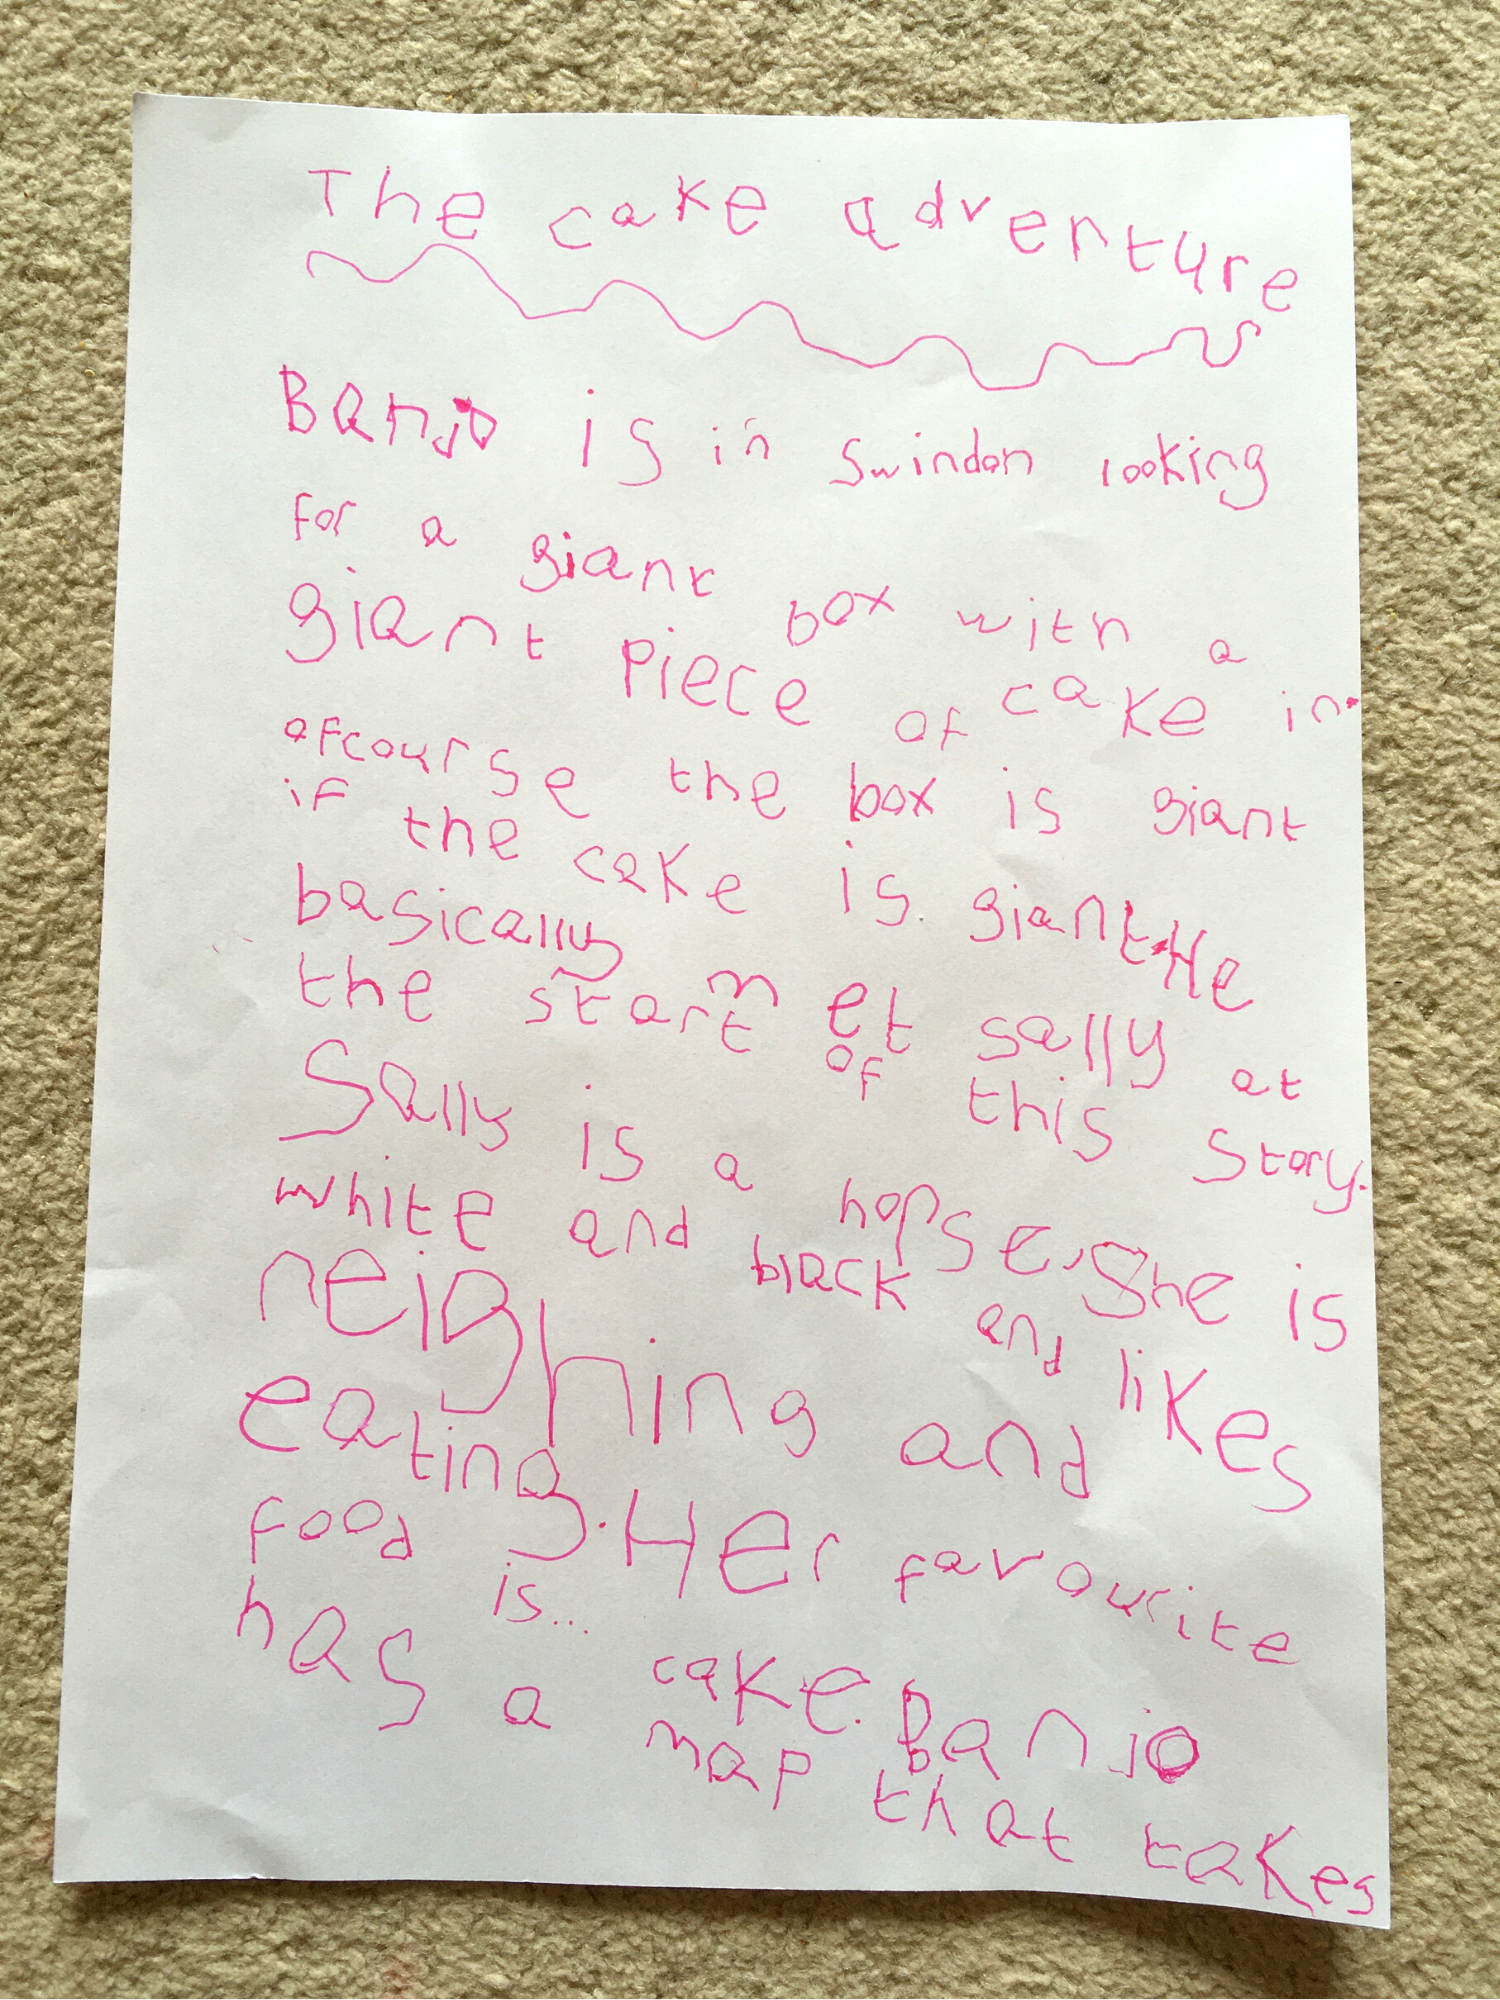 The cake adventure
Banjo is in swindon looking
for a giant box with a
giant piece of cake in.
ofcourse the box is giant
if the cake is giant. He
basically met sally at
the start of this story.
Sally is a horse. She is
white and black and likes
neighing and
eating. Her favourite
food is... cake. Banjo
has a map that takes